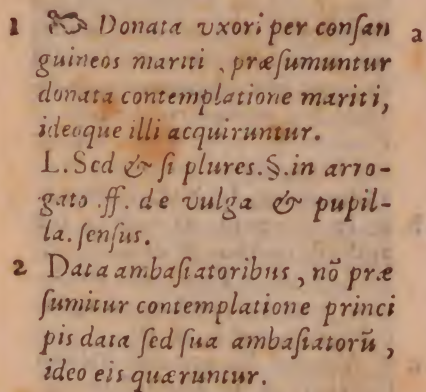 1 Donata vxori per conſan a
guineos mariti, præſumuntur
donata contemplatione mariti,
ideoque illi acquiruntur.
L. Sed & ſi plures. §. in arro-
gato .ff. de vulga & pupil-
la. ſenſus.
2 Data ambaſiatoribus, nõ præ
ſumitur contemplatione princi
pis data ſed ſua ambaſiatorũ,
ideo eis quæruntur.